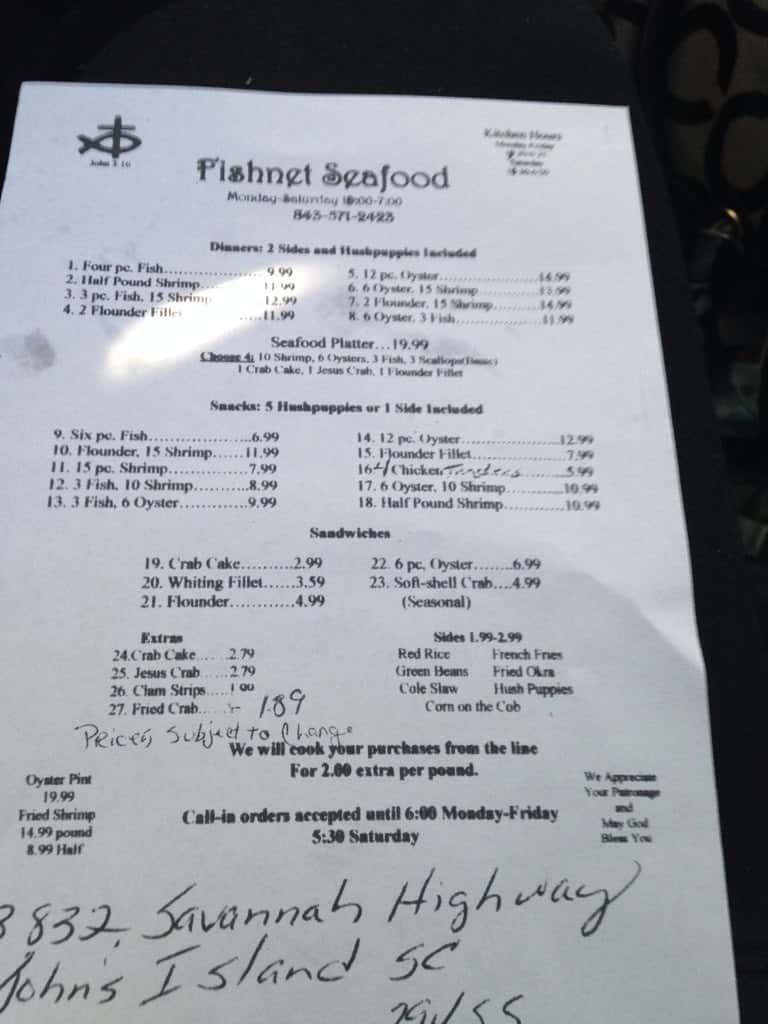 John 3 16
Kitchen Hours
Monday-Friday
Saturday
Fishnet Seafood
Monday-Saturday 10:00-7:00
843-571-2423
Dinners: 2 Sides and Hushpuppies Included
1. Four pc. Fish......................9.99
2. Half Pound Shrimp........11.99
3. 3 pc. Fish, 15 Shrimp 12.99
4. 2 Flounder Fillet .....11.99
5. 12 pc. Oyster.......................14.99
6. 6 Oyster, 15 Shrimp
7. 2 Flounder, 15 Shrimp...........14.99
8. 6 Oyster, 3 Fish
Seafood Platter...19.99
Choose 4: 10 Shrimp, 6 Oysters, 3 Fish, 3 Scallops
1 Crab Cake, 1 Jesus Crab, 1 Flounder Fillet
Snacks: 5 Hushpuppies or 1 Side Included
9. Six pc. Fish....................6.99
10. Flounder, 15 Shrimp......11.99
11. 15 pc. Shrimp...............7.99
12. 3 Fish, 10 Shrimp..........8.99
13. 3 Fish, 6 Oyster............9.99
14. 12 pc. Oyster......................12.99
15. Flounder Fillet....................7.99
16. 4 Chicken Tenders 5.99
17. 6 Oyster, 10 Shrimp............10.99
18. Half Pound Shrimp.............10.99
Sandwiches
19. Crab Cake..........2.99
20. Whiting Fillet......3.59
21. Flounder............4.99
22. 6 pc, Oyster........6.99
23. Soft-shell Crab....4.99
(Seasonal)
Extras
24.Crab Cake.... 2.79
25. Jesus Crab.....2.79
26. Clam Strips.....1.99
27. Fried Crab..... 1.89
Sides 1.99-2.99
Red Rice French Fries
Green Beans Fried Okra
Cole Slaw Hush Puppies
Corn on the Cob
Prices Subject to Change
We will cook your purchases from the line
For 2.00 extra per pound.
Oyster Pint
19.99
Fried Shrimp
14.99 pound
8.99 Half
Call-in orders accepted until 6:00 Monday-Friday
5:30 Saturday
We Appreciate
Your Patronage
and
May God
Bless You
3832 Savannah Highway
John's Island SC
29455